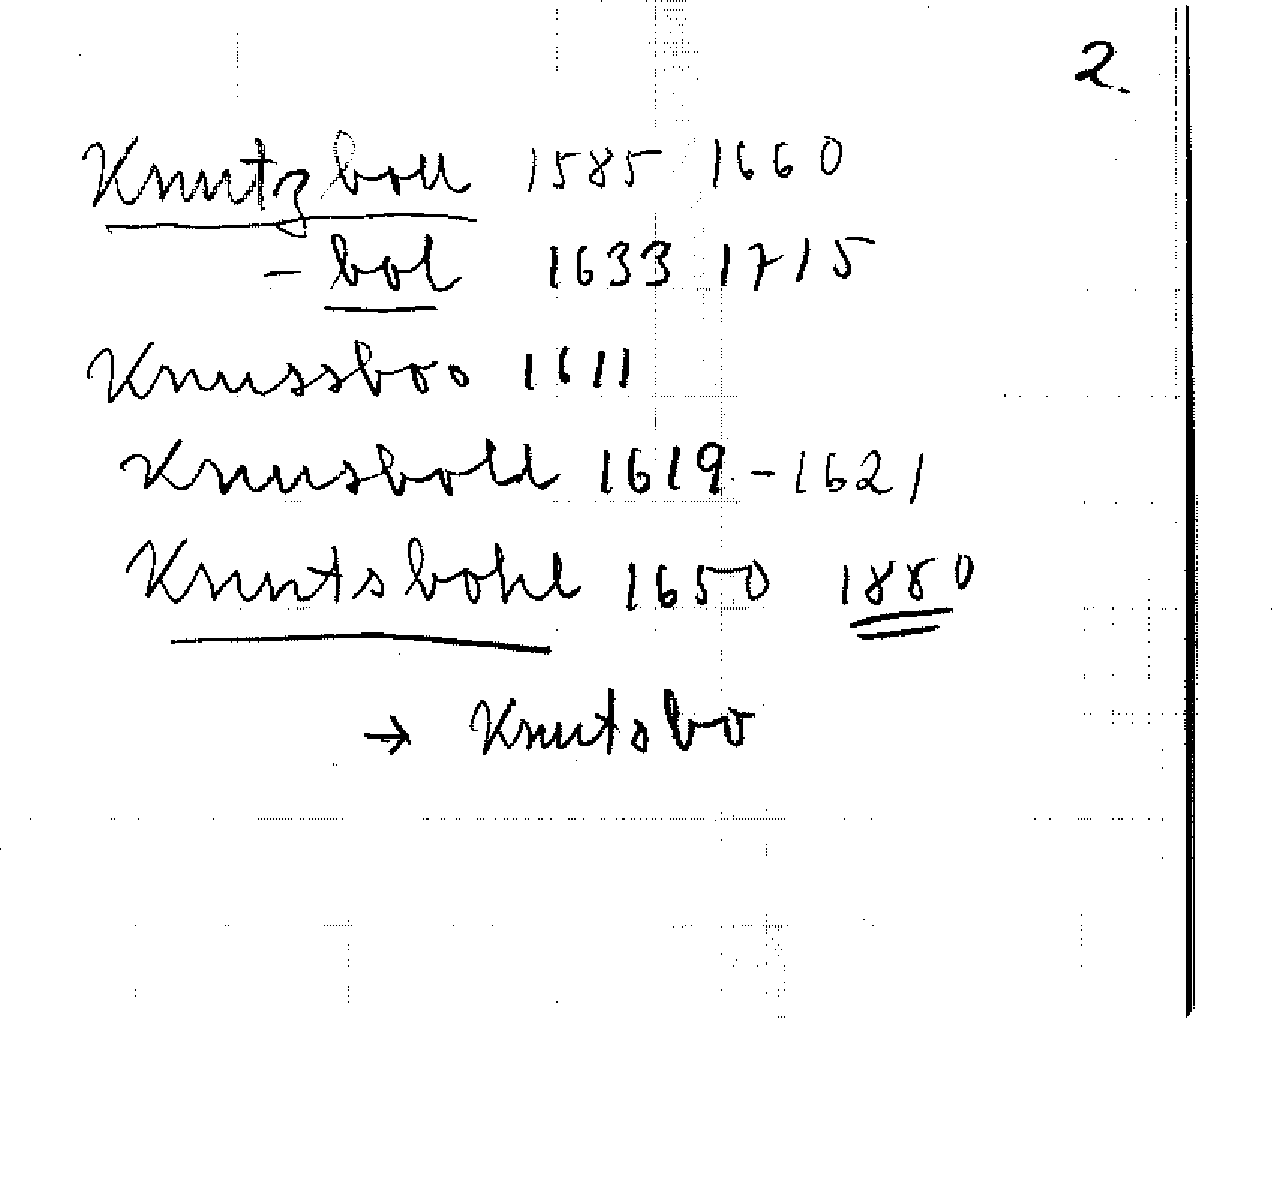 2.
Knutzboll 1585 1660
- bol 1633 1715
Knussboo 1611
Knusbold 1619 - 1621
Knutsbohl 1650 1880
→ Knutsbo